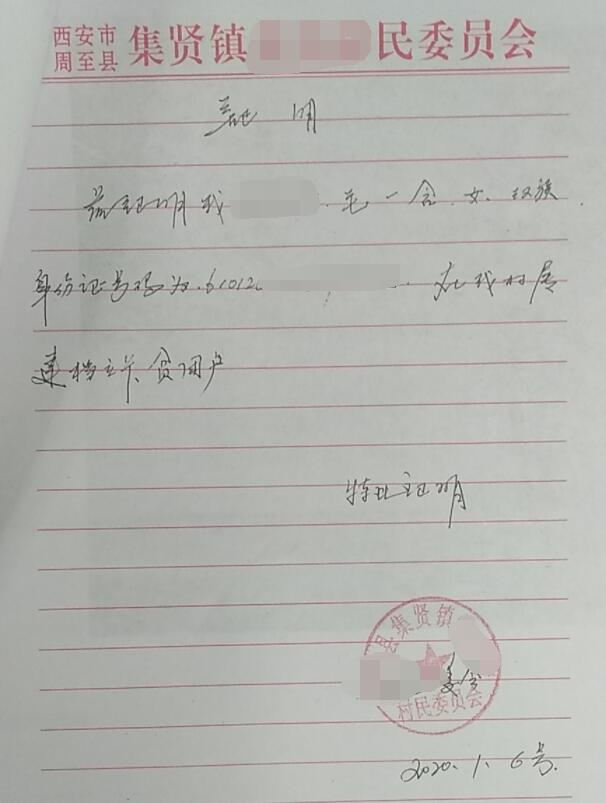 西安市
周至县
集贤镇 民委员会
证明
兹证明我 毛一含,女,汉族,
身份证号码为:61012 在我村属
建档立卡贫困户
特此证明
县集贤镇
村民委员会
2020.1.6号